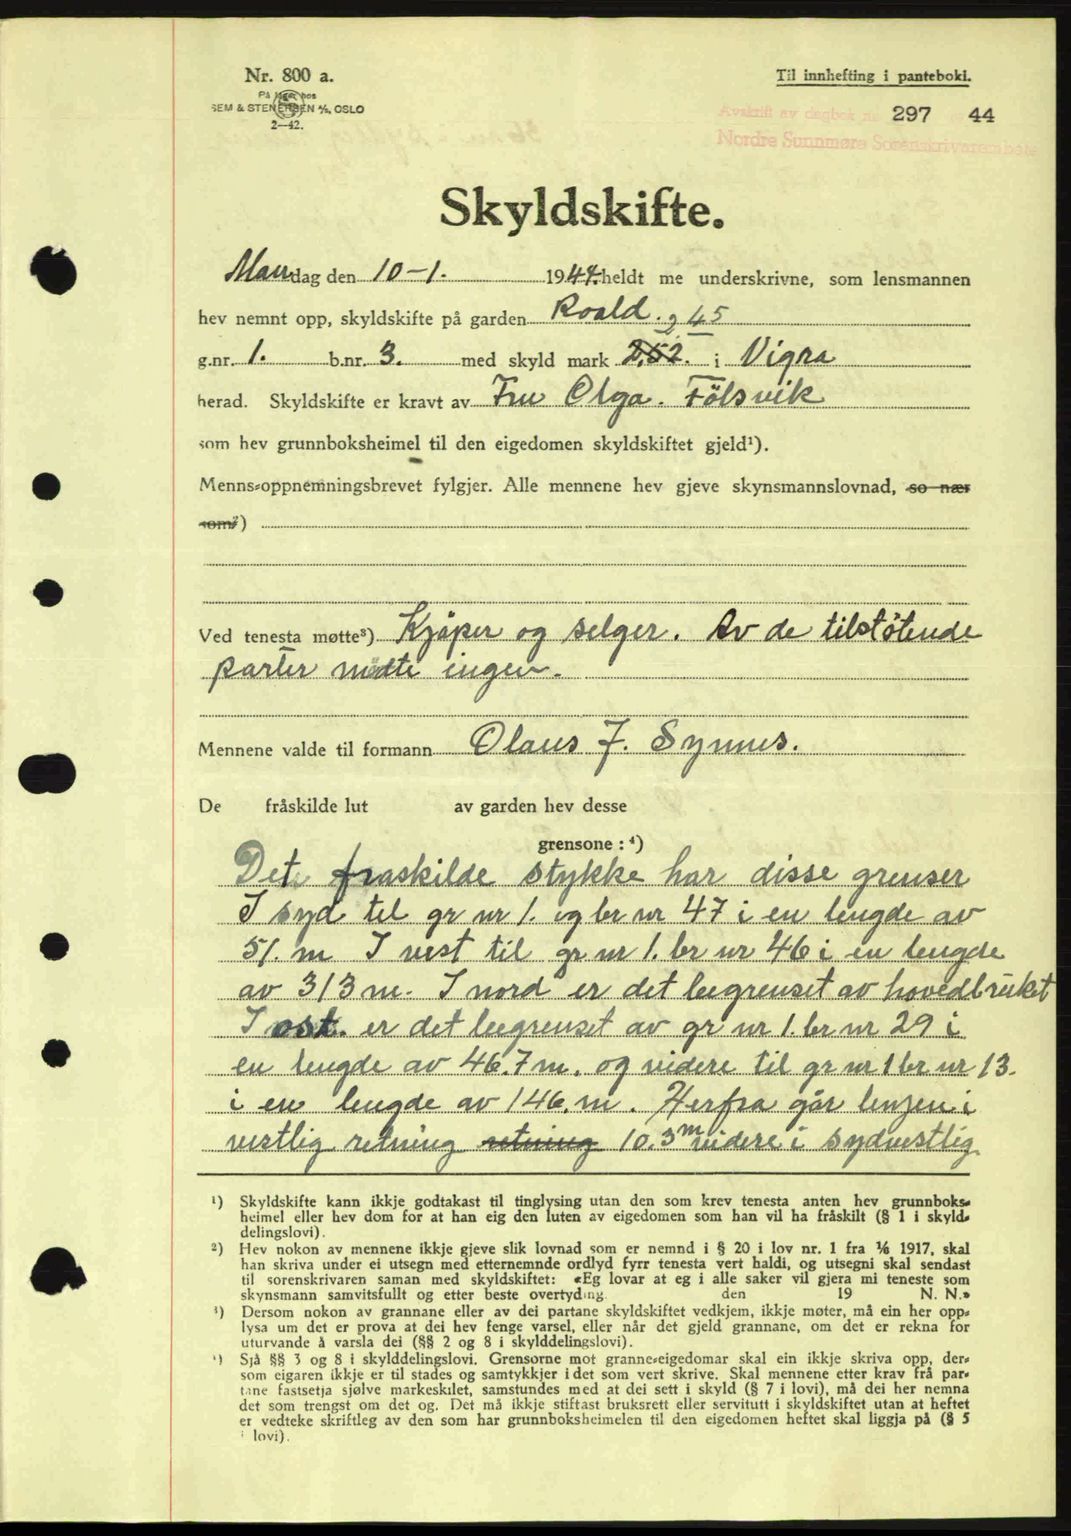 Nr. 800 a.
På lager hos
SEM & STENERSEN A/S, OSLO
2—42.
Til innhefting i panteboki.
Avskrift av dagbok nr. 297 44
Nordre Sunnmøre Sorenskrivarembete
Skyldskifte.
Mandag den 10-1. 1944. heldt me underskrivne, som lensmannen
hev nemnt opp, skyldskifte på garden Roald.
2 45
g.nr. 1. b.nr. 3. med skyld mark 2,52. i Vigra
herad. Skyldskifte er kravt av Fru Olga. Fölsvik
som hev grunnboksheimel til den eigedomen skyldskiftet gjeld¹).
Menns-oppnemningsbrevet fylgjer. Alle mennene hev gjeve skynsmannslovnad, so nær
som²)
Ved tenesta møtte³) Kjøper og selger. Av de tilstøtende
parter mødte ingen.
Mennene valde til formann Olaus J. Synnes.
De fråskilde lut av garden hev desse
grensone : ⁴)
Det fraskilde stykke har disse grenser
I syd til gr nr 1. og br nr 47 i en lengde av
51. m I vest til gr nr 1. br nr 46 i en lengde
av 313 m. I nord er det begrenset av hovedbruket
I øst. er det begrenset av gr nr 1. br nr 29 i
en lengde av 46.7 m. og videre til gr nr 1 br nr 13.
i en lengde av 146. m. Herfra går linjen i
vestlig retning retning 10.3 m videre i sydvestlig
¹) Skyldskifte kann ikkje godtakast til tinglysing utan den som krev tenesta anten hev grunnboks-
heimel eller hev dom for at han eig den luten av eigedomen som han vil ha fråskilt (§ 1 i skyld-
delingslovi).
²) Hev nokon av mennene ikkje gjeve slik lovnad som er nemnd i § 20 i lov nr. 1 fra 1/6 1917, skal
han skriva under ei utsegn med etternemnde ordlyd fyrr tenesta vert haldi, og utsegni skal sendast
til sorenskrivaren saman med skyldskiftet: «Eg lovar at eg i alle saker vil gjera mi teneste som
skynsmann samvitsfullt og etter beste overtyding den 19 N. N.»
³) Dersom nokon av grannane eller av dei partane skyldskiftet vedkjem, ikkje møter, må ein her opp-
lysa um det er prova at dei hev fenge varsel, eller når det gjeld grannane, om det er rekna for
uturvande å varsla dei (§§ 2 og 8 i skylddelingslovi).
⁴) Sjå §§ 3 og 8 i skylddelingslovi. Grensorne mot granne-eigedomar skal ein ikkje skriva opp, der-
som eigaren ikkje er til stades og samtykkjer i det som vert skrive. Skal mennene etter krav frå par-
tane fastsetja sjølve markeskilet, samstundes med at dei sett i skyld (§ 7 i lovi), må dei her nemna
det som trengst om det og. Det må ikkje stiftast bruksrett eller servitutt i skyldskiftet utan at heftet
er vedteke skriftleg av den som har grunnboksheimelen til den eigedomen heftet skal liggja på (§ 5
i lovi).